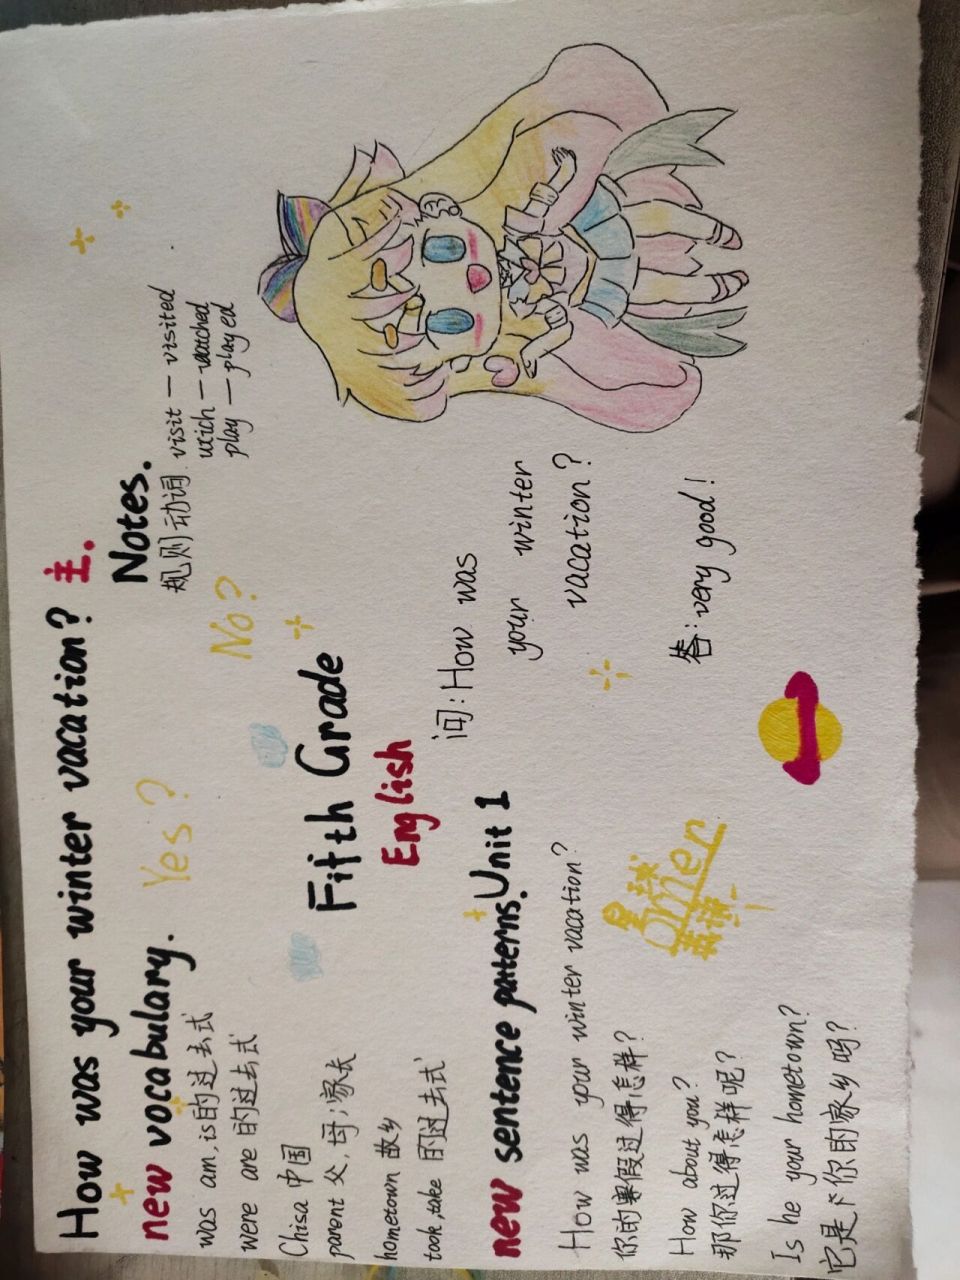 How was your winter vacation? 主.
new vocabulary.
was am,is的过去式
were are 的过去式
Chisa 中国
parent 父,母;家长
hometown 故乡
took,take 的过去式
Yes?
No?
Notes.
规则动词 visit — visited
watched
play — played
Fifth Grade
English
Unit 1
new sentence patterns.
How was your winter vacation?
你的寒假过得怎样?
How about you?
那你过得怎样呢?
Is he your hometown?
它是 你的家乡吗?
问:How was
your winter
vacation?
答:very good!